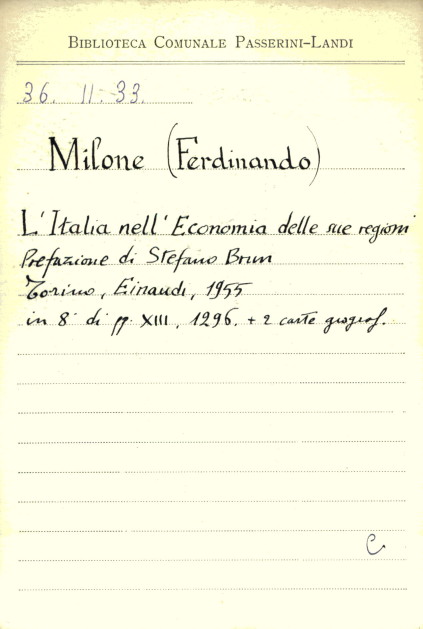 BIBLIOTECA COMUNALE PASSERINI-LANDI
36. 11. 33.
Milone (Ferdinando)
L'Italia nell'Economia delle sue regioni
Prefazione di Stefano Brun
Torino, Einaudi, 1955
in 8° di pp. XIII, 1296. + 2 carte geogrof.
C.